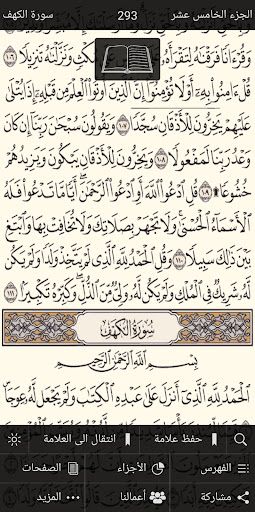 الجزء الخامس عشر 293 سورة الكهف
وَقُرْءَانًا فَرَقْنَٰهُ لِتَقْرَأَهُۥ تَنزِيلًا ١٠٦
قُلْ ءَامِنُوا۟ بِهِۦٓ أَوْ لَا تُؤْمِنُوٓا۟ إِنَّ ٱلَّذِينَ أُوتُوا۟ ٱلْعِلْمَ مِن قَبْلِهِۦٓ إِذَا يُتْلَىٰ
عَلَيْهِمْ يَخِرُّونَ لِلْأَذْقَانِ سُجَّدًا ١٠٧ وَيَقُولُونَ سُبْحَٰنَ رَبِّنَآ إِن كَانَ
وَعْدُ رَبِّنَا لَمَفْعُولًا ١٠٨ وَيَخِرُّونَ لِلْأَذْقَانِ يَبْكُونَ وَيَزِيدُهُمْ
خُشُوعًا ١٠٩ قُلِ ٱدْعُوا۟ ٱللَّهَ أَوِ ٱدْعُوا۟ ٱلرَّحْمَٰنَ أَيًّا مَّا تَدْعُوا۟ فَلَهُ
ٱلْأَسْمَآءُ ٱلْحُسْنَىٰ وَلَا تَجْهَرْ بِصَلَاتِكَ وَلَا تُخَافِتْ بِهَا وَٱبْتَغِ
بَيْنَ ذَٰلِكَ سَبِيلًا ١١٠ وَقُلِ ٱلْحَمْدُ لِلَّهِ ٱلَّذِى لَمْ يَتَّخِذْ وَلَدًا وَلَمْ يَكُن
لَّهُۥ شَرِيكٌ فِى ٱلْمُلْكِ وَلَمْ يَكُن لَّهُۥ وَلِىٌّ مِّنَ ٱلذُّلِّ وَكَبِّرْهُ تَكْبِيرًۢا ١١١
سُورَةُ الكَهْفِ
بِسْمِ ٱللَّهِ ٱلرَّحْمَٰنِ ٱلرَّحِيمِ
ٱلْحَمْدُ لِلَّهِ ٱلَّذِىٓ أَنزَلَ عَلَىٰ عَبْدِهِ ٱلْكِتَٰبَ وَلَمْ يَجْعَل لَّهُۥ عِوَجَا
حفظ علامة انتقال الى العلامة
الفهرس الأجزاء الصفحات
مشاركة أعمالنا المزيد